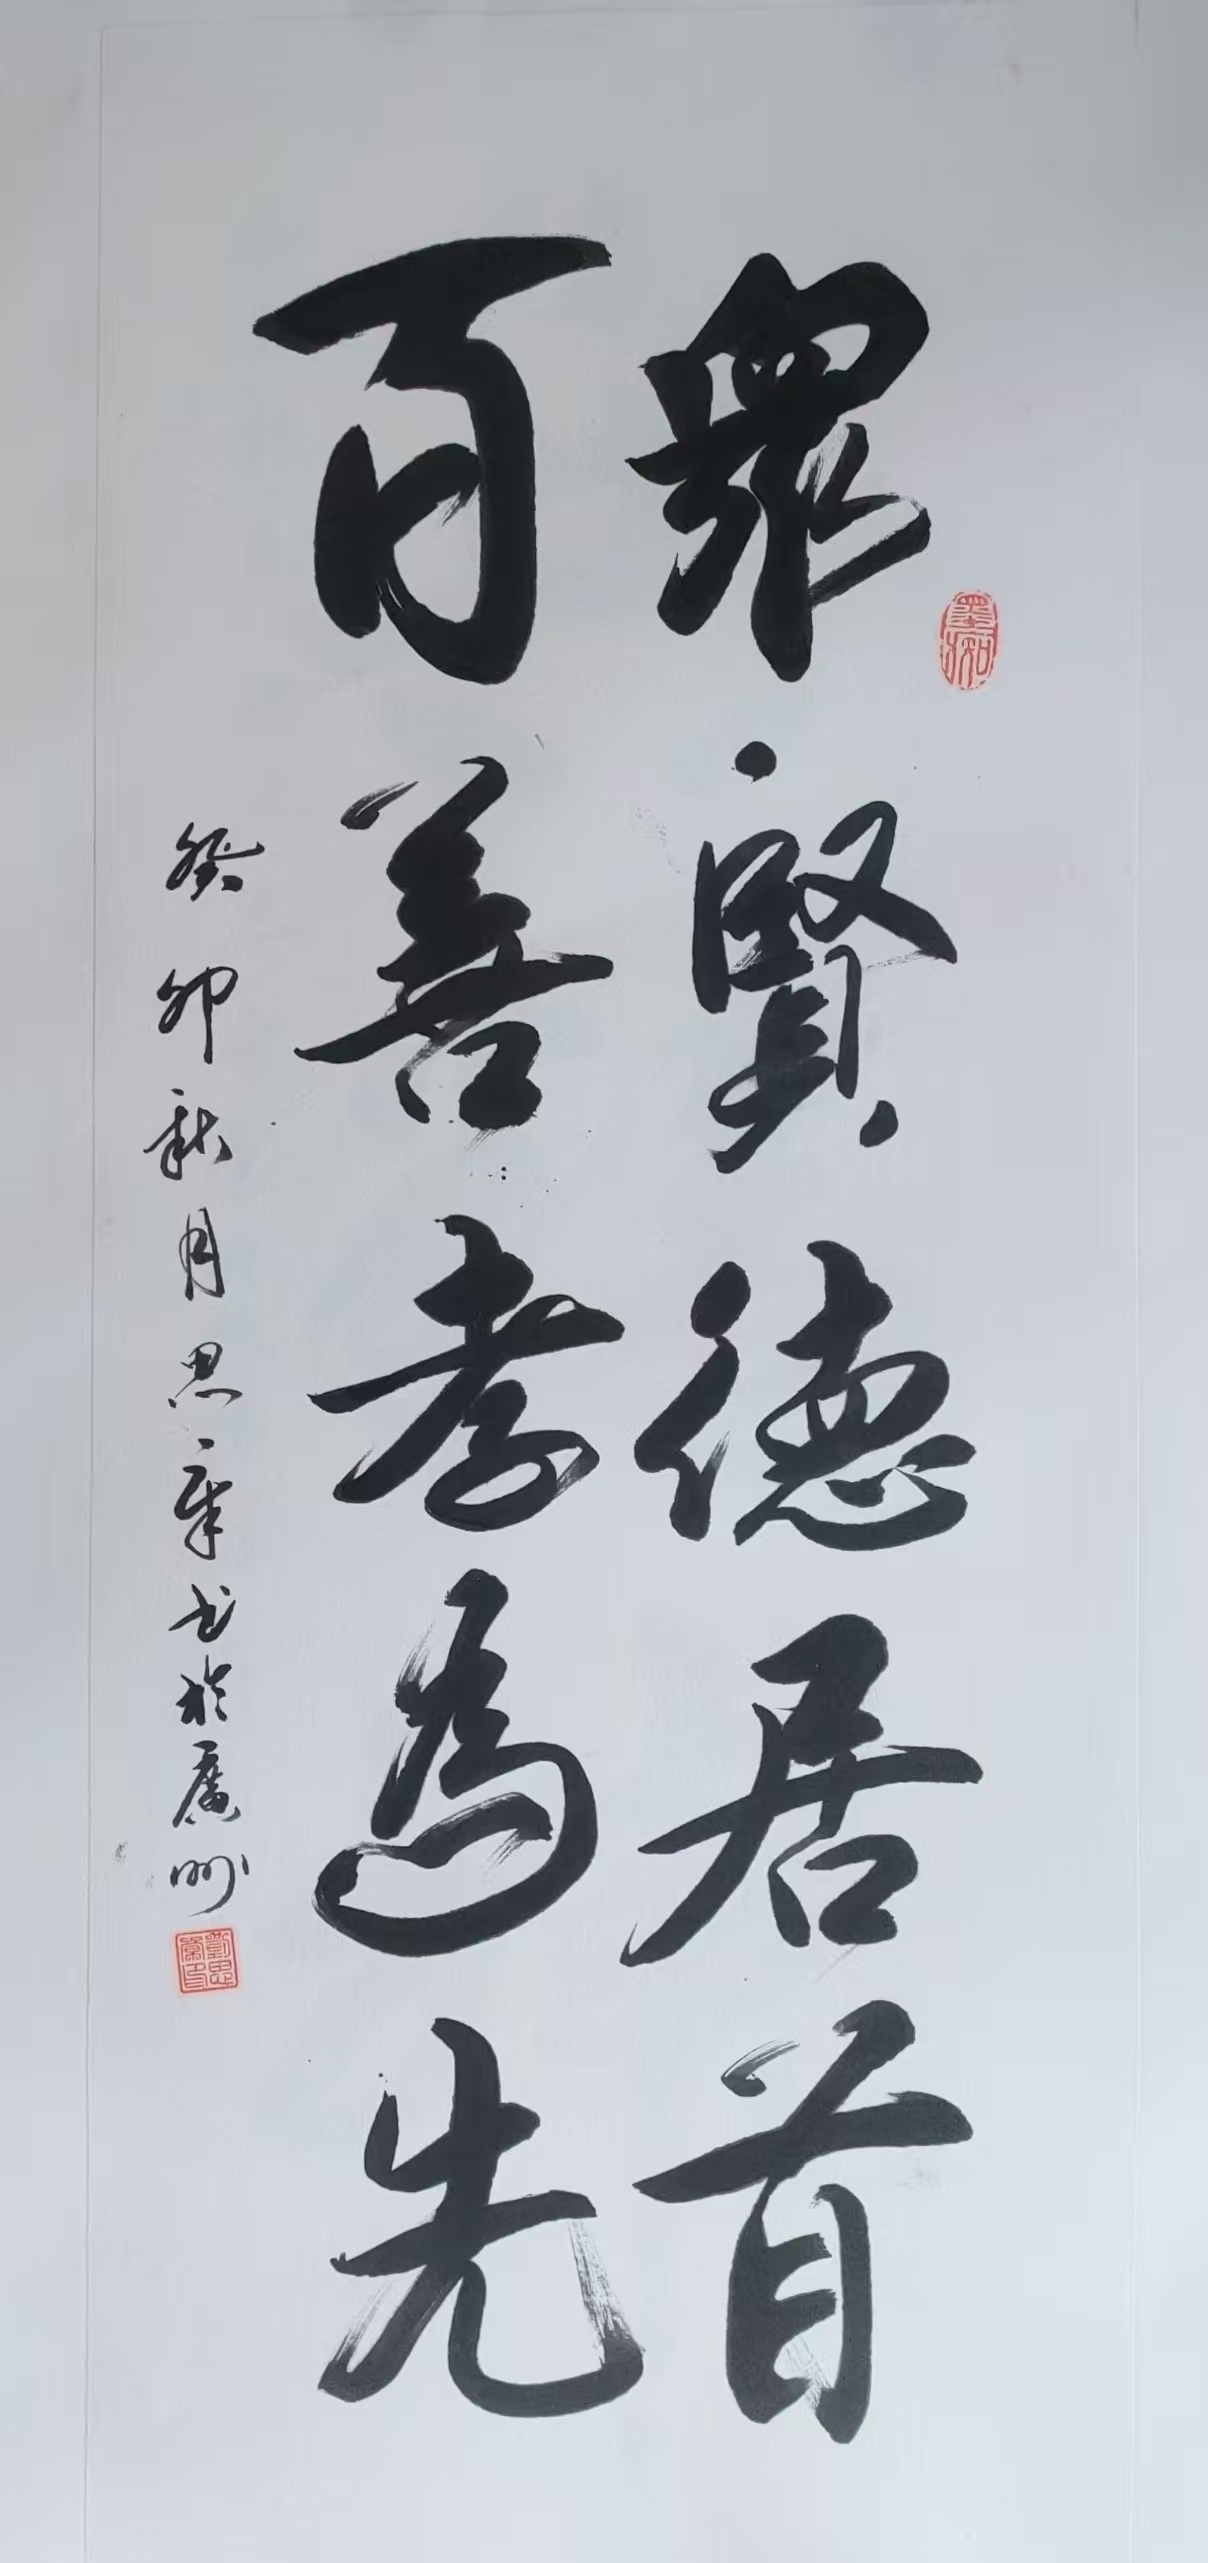 墨痴
眾賢德居首
百善孝為先
癸卯秋月思章书於廣州